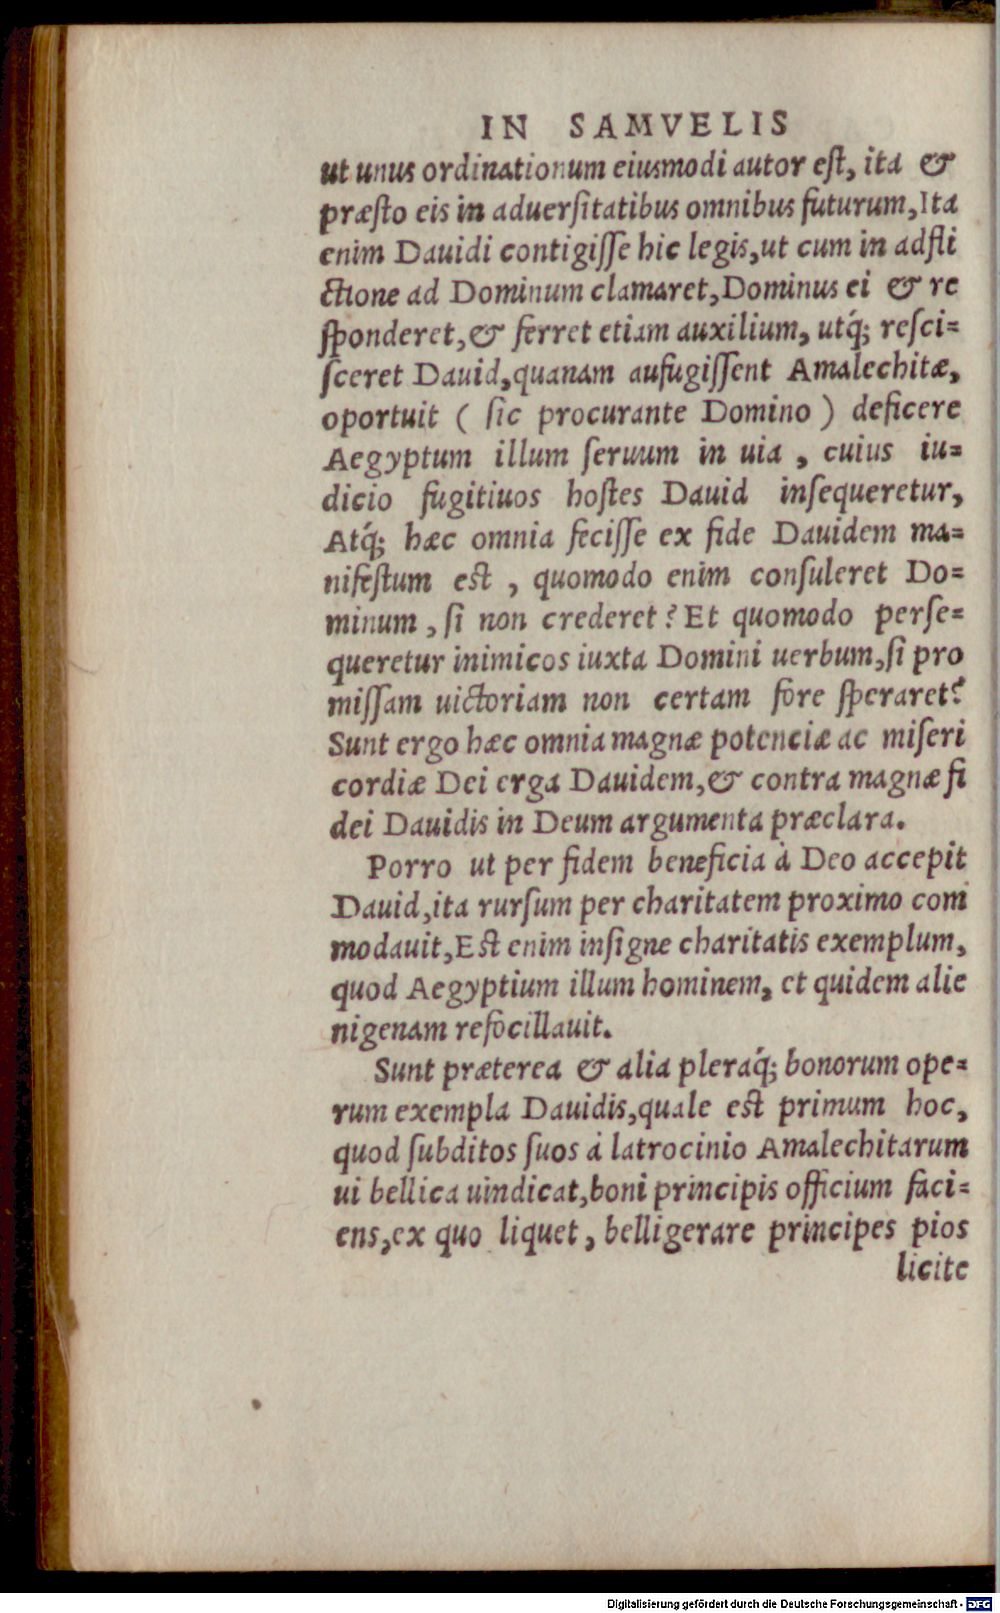 IN SAMVELIS
ut unus ordinationum eiusmodi autor est, ita &
præsto eis in aduersitatibus omnibus futurum, Ita
enim Dauidi contigisse hic legis, ut cum in adfli
ctione ad Dominum clamaret, Dominus ei & re
sponderet, & ferret etiam auxilium, utq́; resci=
sceret Dauid, quanam aufugissent Amalechitæ,
oportuit ( sic procurante Domino ) deficere
Aegyptum illum seruum in uia , cuius iu=
dicio fugitiuos hostes Dauid insequeretur,
Atq́; hæc omnia fecisse ex fide Dauidem ma=
nifestum est , quomodo enim consuleret Do=
minum , si non crederet? Et quomodo perse=
queretur inimicos iuxta Domini uerbum, si pro
missam uictoriam non certam fore speraret?
Sunt ergo hæc omnia magnæ potenciæ ac miseri
cordiæ Dei erga Dauidem, & contra magnæ fi
dei Dauidis in Deum argumenta præclara.
Porro ut per fidem beneficia à Deo accepit
Dauid, ita rursum per charitatem proximo com
modauit, Est enim insigne charitatis exemplum,
quod Aegyptium illum hominem, et quidem alie
nigenam refocillauit.
Sunt præterea & alia pleraq́; bonorum ope=
rum exempla Dauidis, quale est primum hoc,
quod subditos suos à latrocinio Amalechitarum
ui bellica uindicat, boni principis officium faci=
ens, ex quo liquet , belligerare principes pios
licite
Digitalisierung gefördert durch die Deutsche Forschungsgemeinschaft - DFG